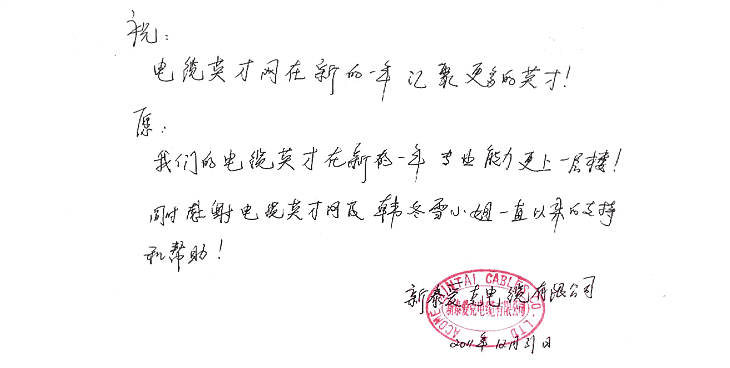 祝：
电缆英才网在新的一年汇聚更多的英才！
愿：
我们的电缆英才在新的一年专业能力更上一层楼！
同时感谢电缆英才网及韩冬雪小姐一直以来的支持
和帮助！
新泰爱克电缆有限公司
ACOME XINTAI CABLES CO., LTD
（新泰爱克电缆有限公司）
2011年12月31日